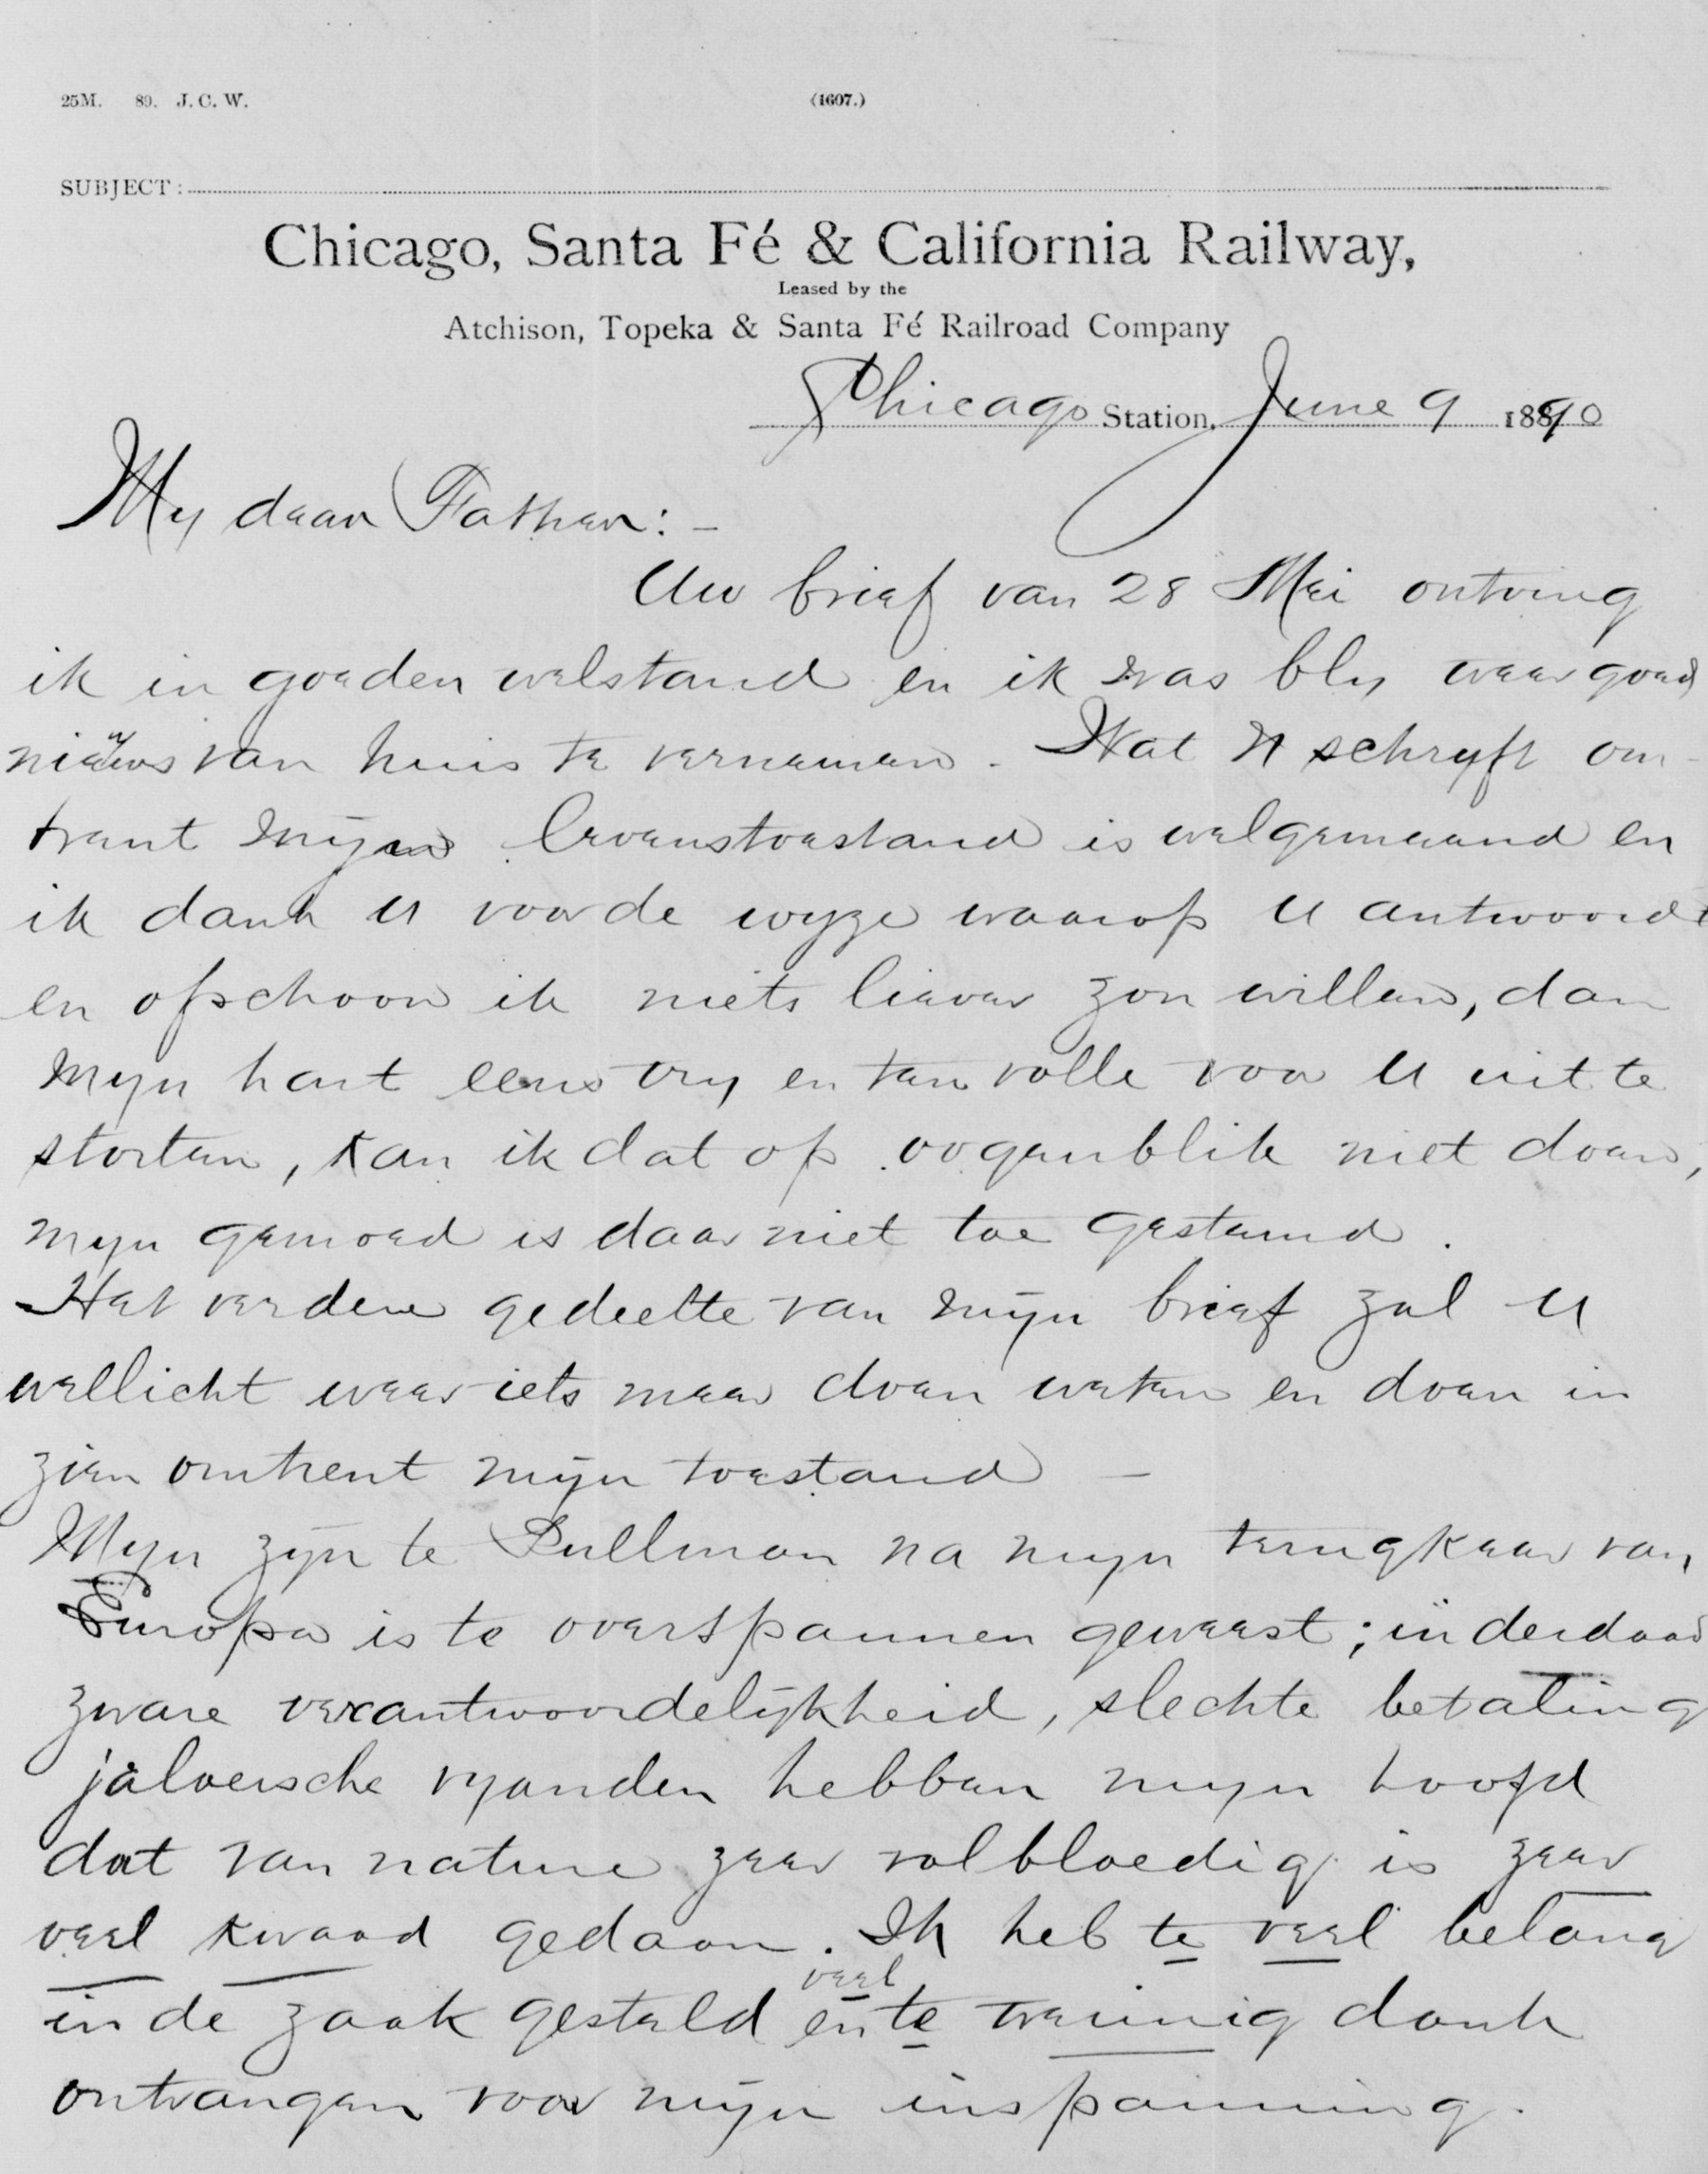 25M. 89. J. C. W. (1607.)
SUBJECT:
Chicago, Santa Fé & California Railway,
Leased by the
Atchison, Topeka & Santa Fé Railroad Company
Chicago Station, June 9 1890
My dear Father: -
Uw brief van 28 Mei ontving
ik in goeden welstand en ik was bly weer goed
nieuws van huis te vernemen. Wat U schryft om-
trent mijn levenstoestand is welgemeend en
ik dank U voor de wyze waarop U antwoordt
en ofschoon ik niets liever zou willen, dan
myn hart eens vry en ten volle voor U uit te
storten, kan ik dat op oogenblik niet doen,
myn gemoed is daar niet toe gestemd.
Het verdere gedeelte van mijn brief zal U
wellicht weer iets meer doen weten en doen in
zien omtrent mijn toestand —
Myn zyn te Pullman na myn terugkeer van
Europa is te overspannen geweest; inderdaad
zware verantwoordelijkheid, slechte betaling
jaloersche vyanden hebben myn hoofd
dat van nature zeer volbloedig is zeer
veel kwaad gedaan. Ik heb te veel belang
in de zaak gesteld en veel te weinig dank
ontvangen voor mijn inspanning.